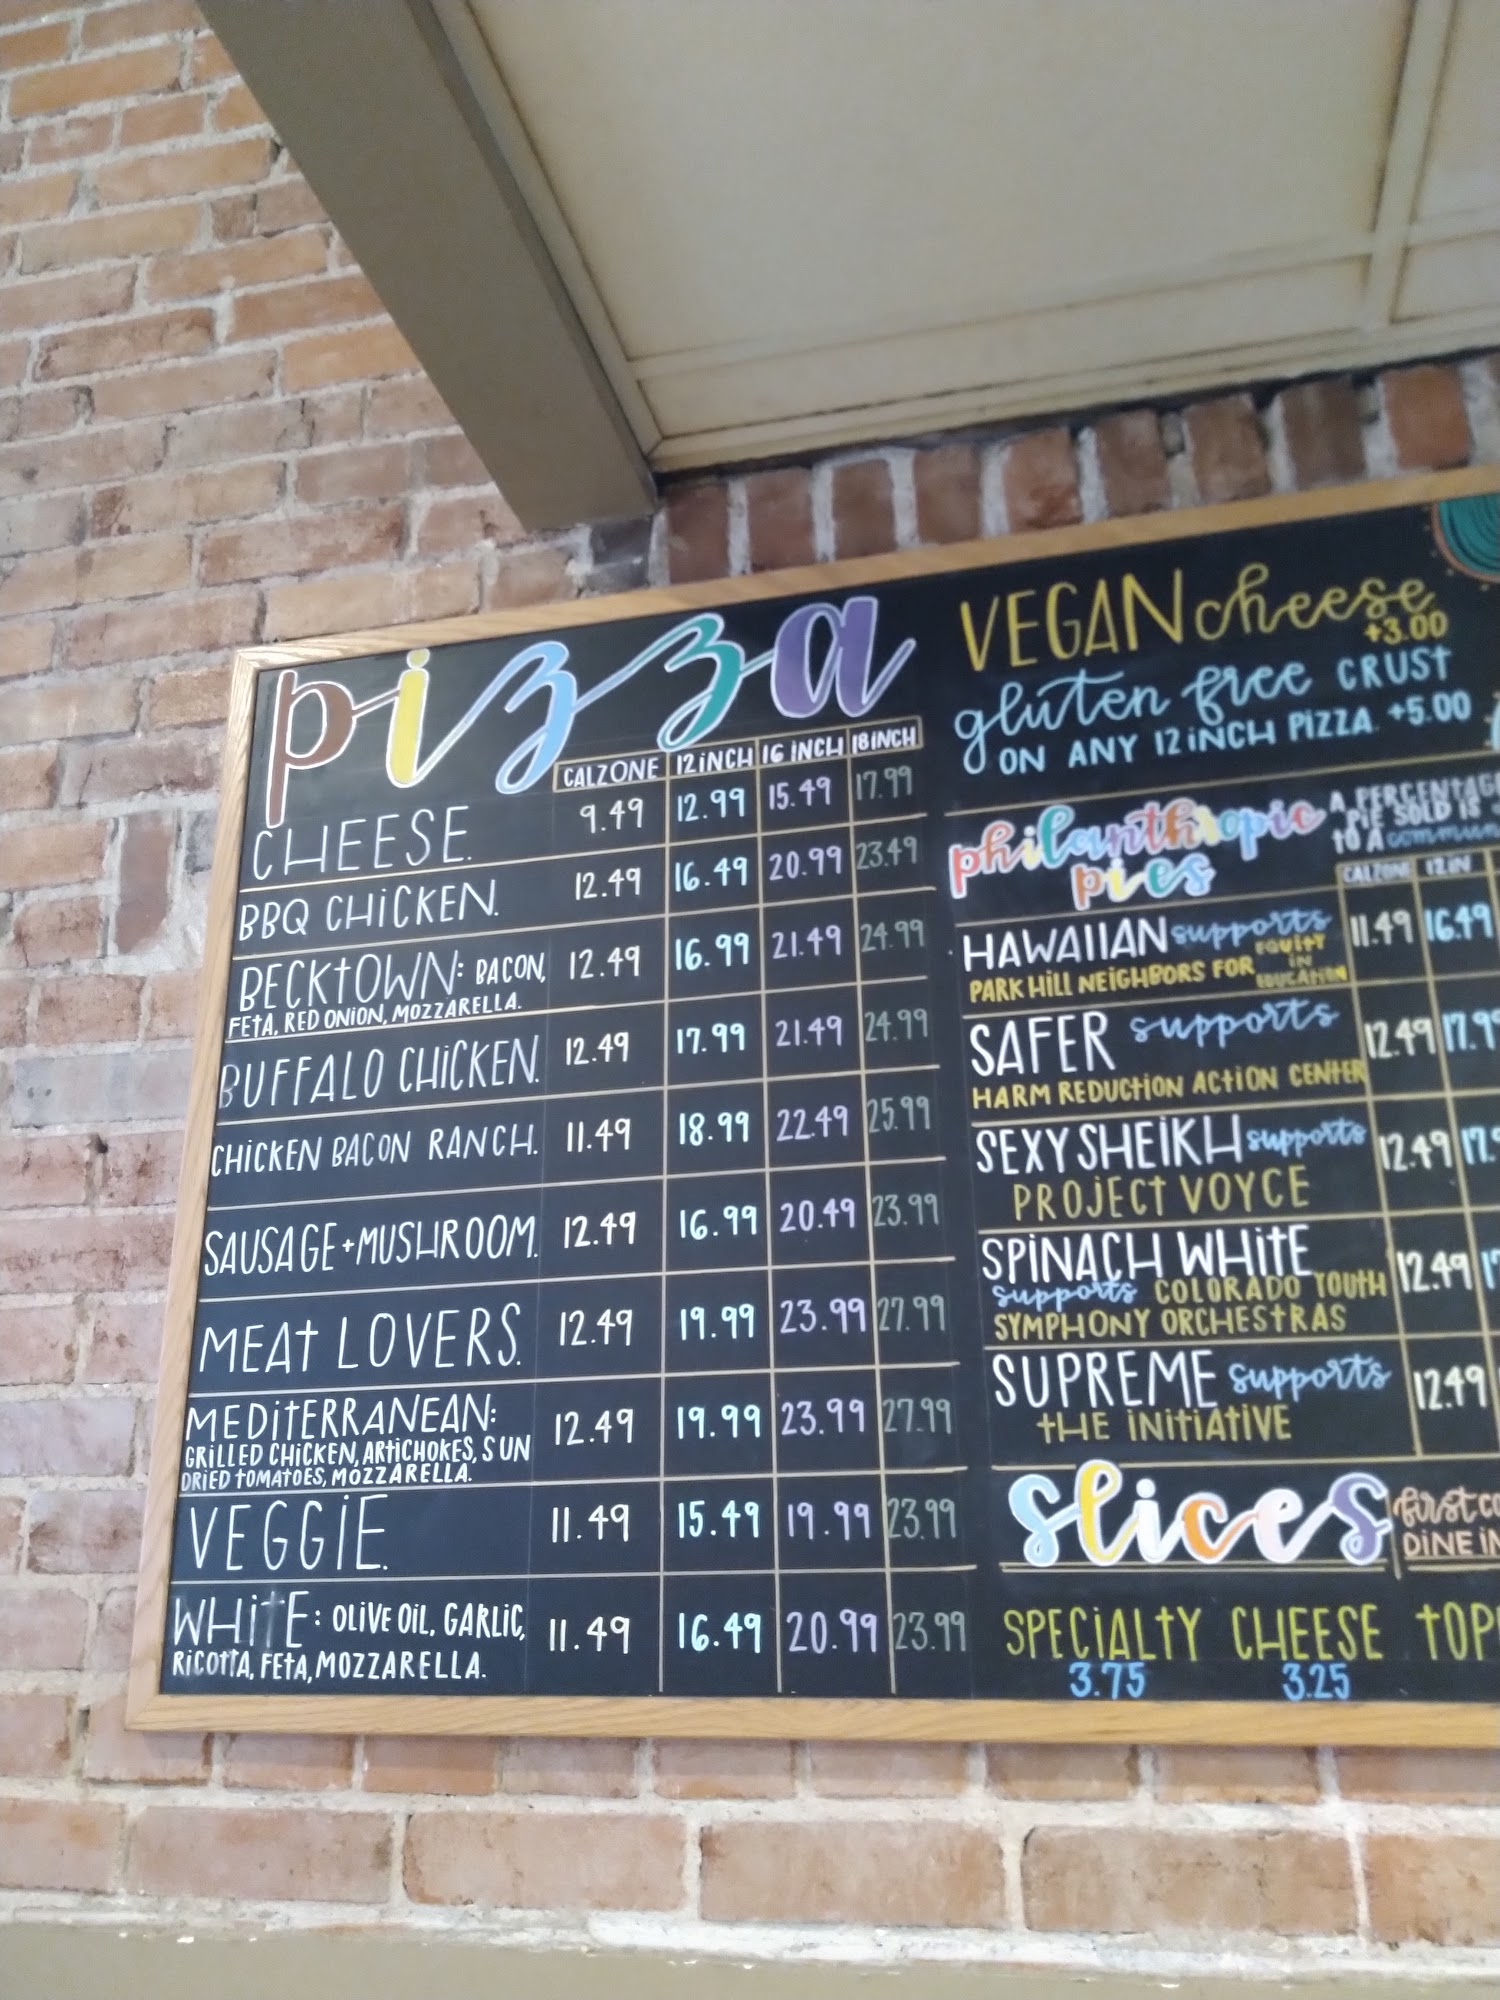 pizza
CALZONE 12 INCH 16 INCH 18 INCH
CHEESE. 9.49 12.99 15.49 17.99
BBQ CHICKEN. 12.49 16.49 20.99 23.49
BECKTOWN: BACON, 12.49 16.99 21.49 24.99
FETA, RED ONION, MOZZARELLA.
BUFFALO CHICKEN. 12.49 17.99 21.49 24.99
CHICKEN BACON RANCH. 11.49 18.99 22.49 25.99
SAUSAGE + MUSHROOM. 12.49 16.99 20.49 23.99
MEAT LOVERS. 12.49 19.99 23.99 27.99
MEDITERRANEAN: 12.49 19.99 23.99 27.99
GRILLED CHICKEN, ARTICHOKES, SUN
DRIED TOMATOES, MOZZARELLA.
VEGGIE. 11.49 15.49 19.99 23.99
WHITE: OLIVE OIL, GARLIC, 11.49 16.49 20.99 23.99
RICOTTA, FETA, MOZZARELLA.
VEGAN cheese
+3.00
gluten free CRUST
ON ANY 12 INCH PIZZA. +5.00
philanthropic
pies
A PERCENTAGE
PIE SOLD IS
TO A
CALZONE 12 IN
HAWAIIAN supports 11.49 16.49
PARK HILL NEIGHBORS FOR EQUITY
IN
EDUCATION
SAFER supports 12.49 17.99
HARM REDUCTION ACTION CENTER
SEXY SHEIKH supports 12.49
PROJECT VOYCE
SPINACH WHITE 12.49
supports COLORADO YOUTH
SYMPHONY ORCHESTRAS
SUPREME supports 12.49
THE INITIATIVE
slices
first
DINE IN
SPECIALTY CHEESE
3.75 3.25